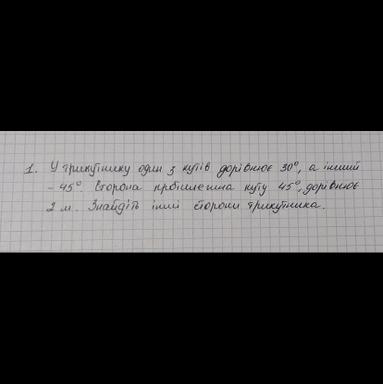 1. У трикутнику один з кутів дорівнює 30°, а інший
- 45°. Сторона протилежна куту 45°, дорівнює
2 м. Знайдіть інші сторони трикутника.